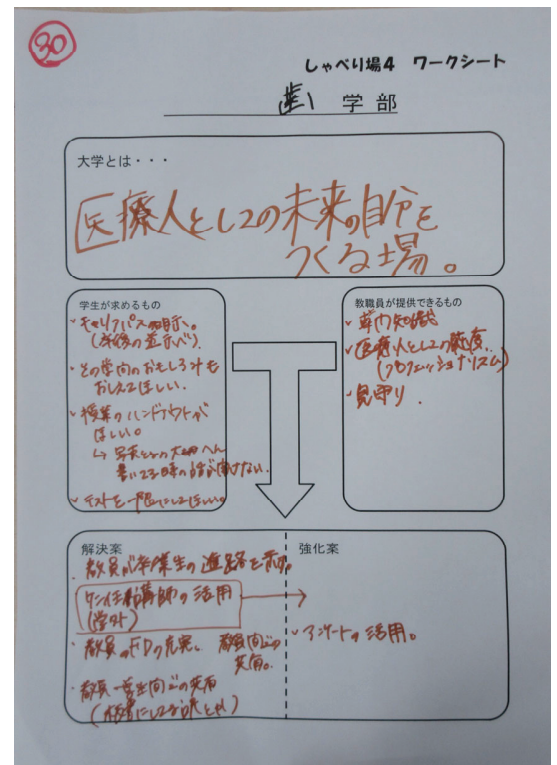 30
しゃべり場4 ワークシート
歯 学部
大学とは・・・
医療人としての未来の自分を
つくる場。
学生が求めるもの
キャリアパスの明示。
(卒後の道示べ)
その学問のおもしろみを
おしえてほしい。
授業のハンドアウトが
ほしい。
→ 写すとの大変
書いてる時の話が聞けない。
テストを一限にしてほしい。
教職員が提供できるもの
専門知識
医療人としての態度
(プロフェッショナリズム)
見守り
解決案
教員が卒業生の進路を示す。
講師の活用
(学外)
教員のFDの充実、教員間での
共有。
教員-学生間での共有
強化案
アンケートの活用。